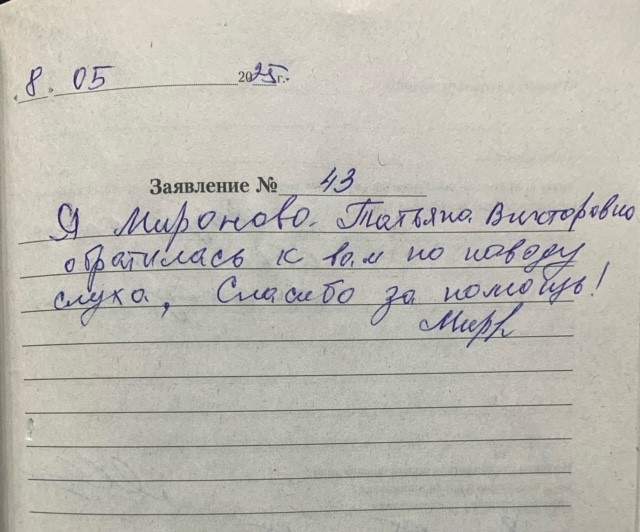 «8» 05 2025г.
Заявление № 43
Я Миронова Татьяна Викторовна
обратилась к вам по поводу
слуха, Спасибо за помощь!